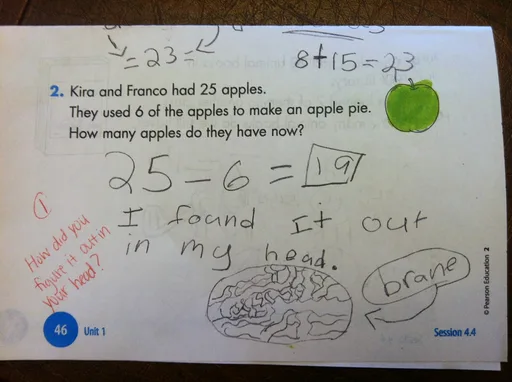 = 23 =
8+15=23
2. Kira and Franco had 25 apples.
They used 6 of the apples to make an apple pie.
How many apples do they have now?
25 - 6 = 19
I found It out
in my head.
brane
①
How did you
figure it out in
your head?
46 Unit 1
Session 4.4
© Pearson Education 2